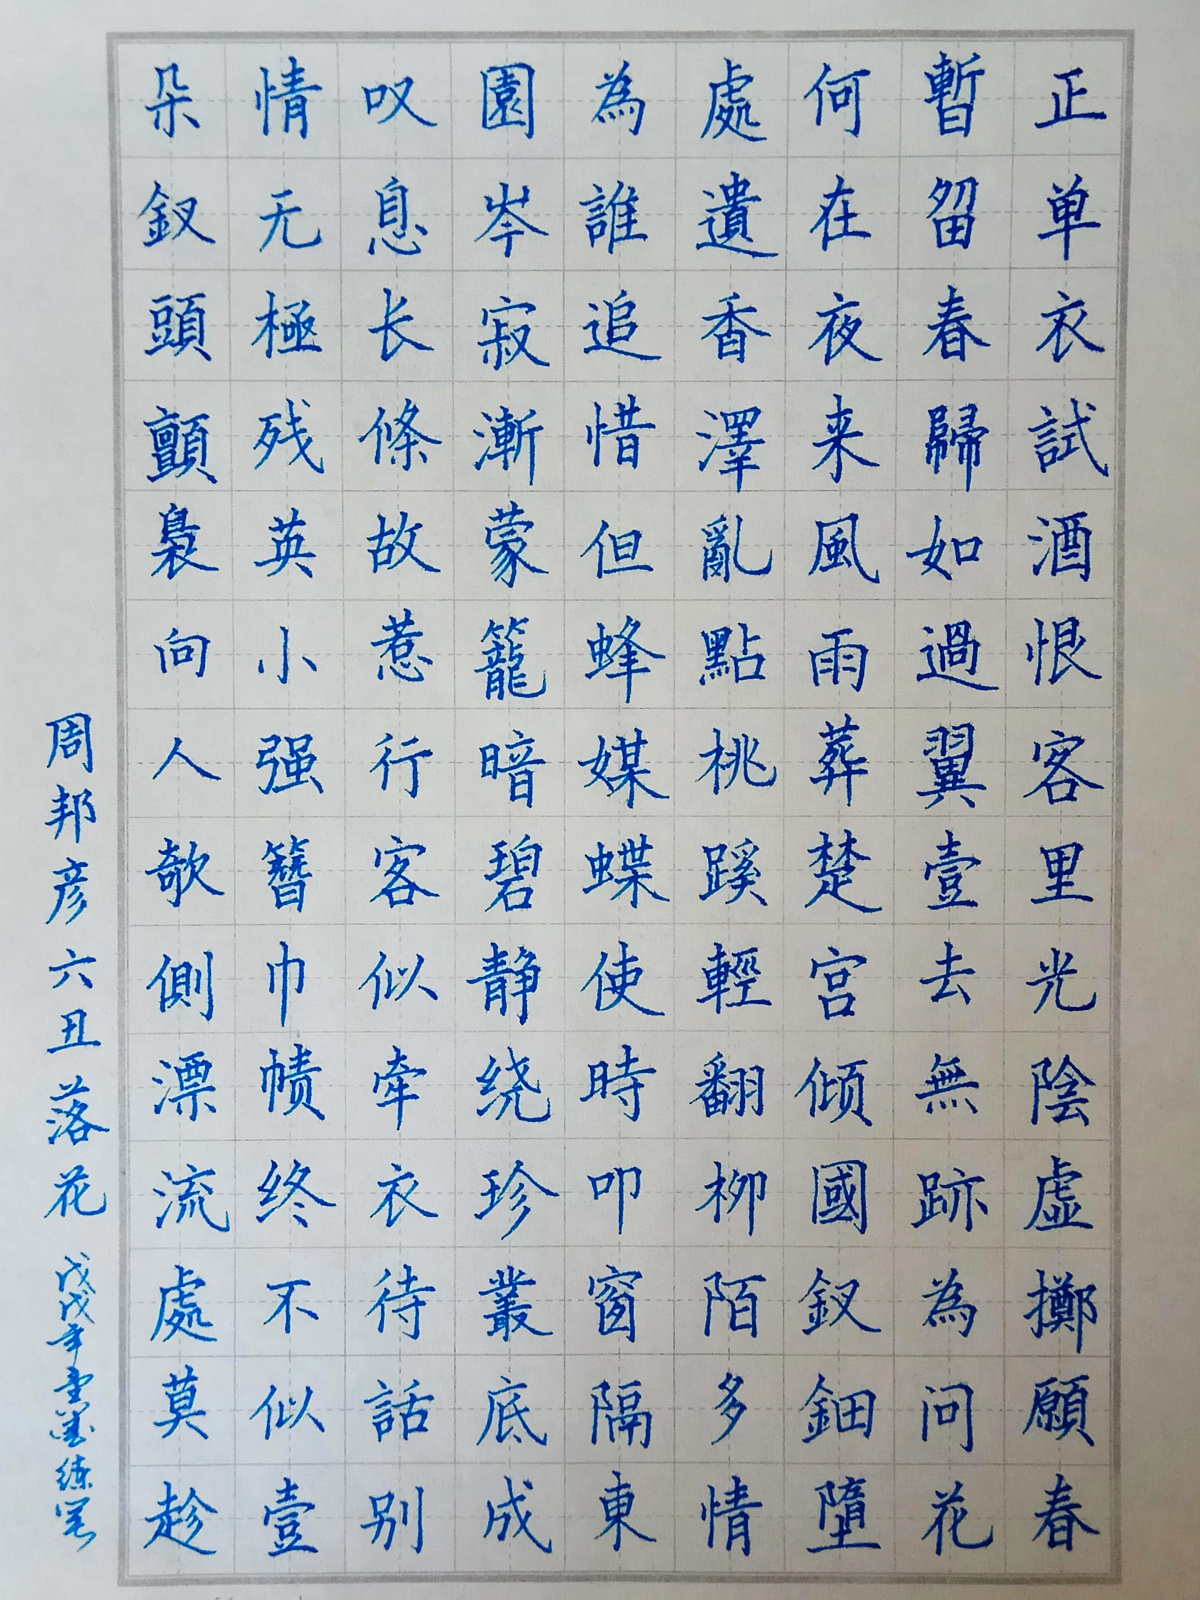 正单衣試酒恨客里光陰虚擲願春
暫留春歸如過翼壹去無跡為问花
何在夜来風雨葬楚宫倾國釵鈿墮
處遺香澤亂點桃蹊輕翻柳陌多情
為誰追惜但蜂媒蝶使時叩窗隔東
園岑寂漸蒙籠暗碧静绕珍叢底成
叹息长條故惹行客似牵衣待話别
情无極残英小强簪巾帻终不似壹
朵釵頭顫裊向人欹側漂流處莫趁
周邦彦六丑落花 戊戌年